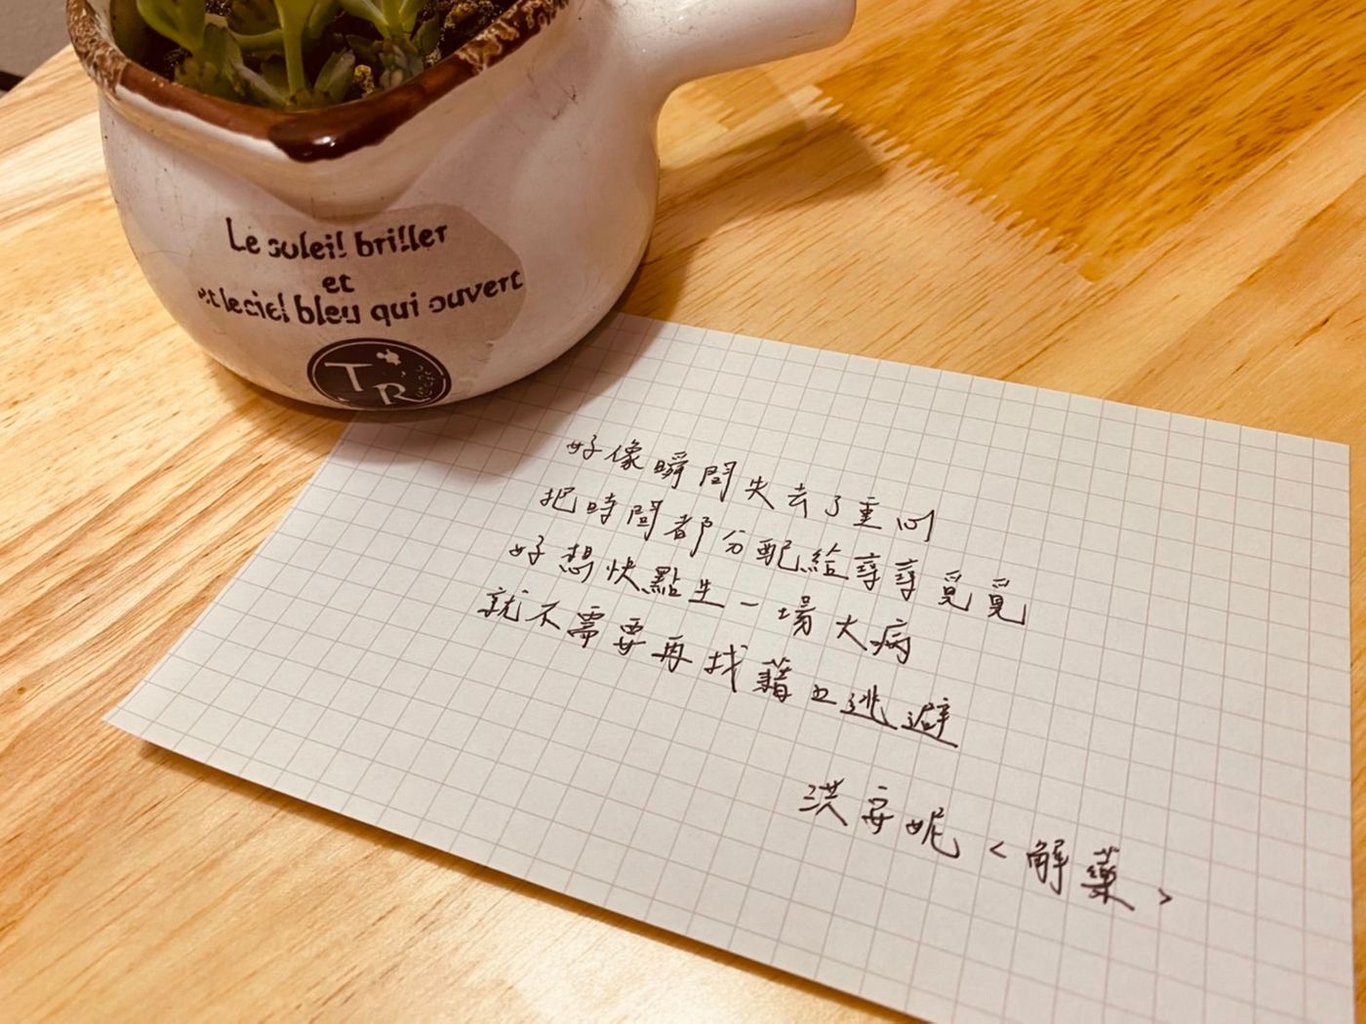 Le soleil briller
et
et le ciel bleu qui ouvert
TR
好像瞬間失去了重心
把時間都分配給尋尋覓覓
好想快點生一場大病
就不需要再找藉口逃避
洪安妮<解藥>